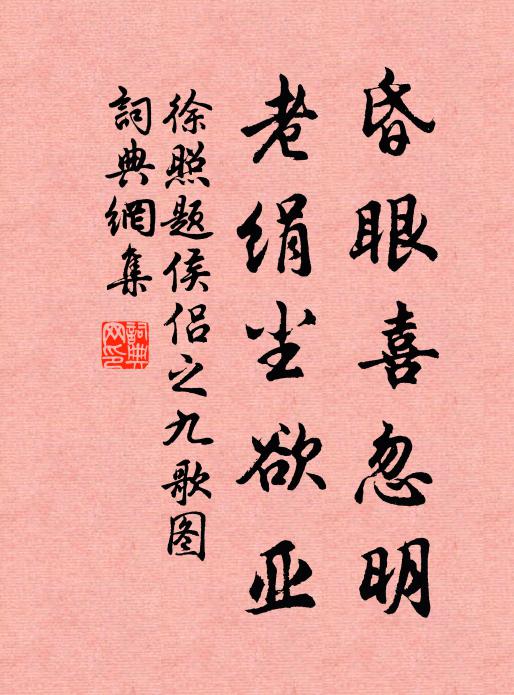 昏眼喜忽明
老绢尘欲亚
徐照题侯侣之九歌图
詞典網集
詞典网印